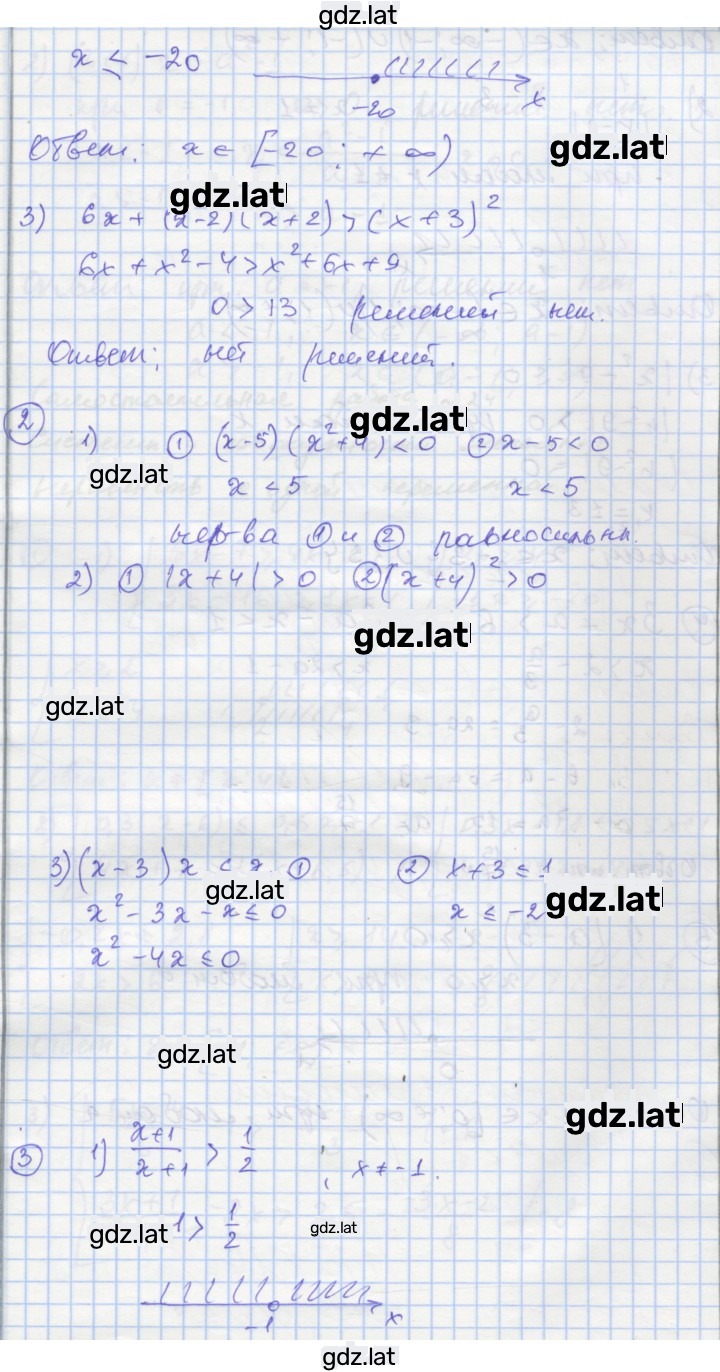 gdz.lat
x ≤ -20
-20 x
Ответ: x ∈ [-20; + ∞)
gdz.lat
gdz.lat
3) 6x + (x-2)(x+2) > (x+3)²
6x + x² - 4 > x² + 6x + 9
0 > 13 решений нет.
Ответ: нет решений.
2
gdz.lat
1) ① (x-5)(x²+4) < 0 ② x-5 < 0
gdz.lat
x < 5 x < 5
нер-ва ① и ② равносильны.
2) ① |x+4| > 0 ② (x+4)² > 0
gdz.lat
gdz.lat
3) (x-3) x < x ① ② x+3 ≤ 1
gdz.lat
gdz.lat
x² - 3x - x ≤ 0 x ≤ -2
x² - 4x ≤ 0
gdz.lat
gdz.lat
3 1) x+1/x+1 > 1/2 ; x ≠ -1.
gdz.lat 1 > 1/2 gdz.lat
-1 x
gdz.lat